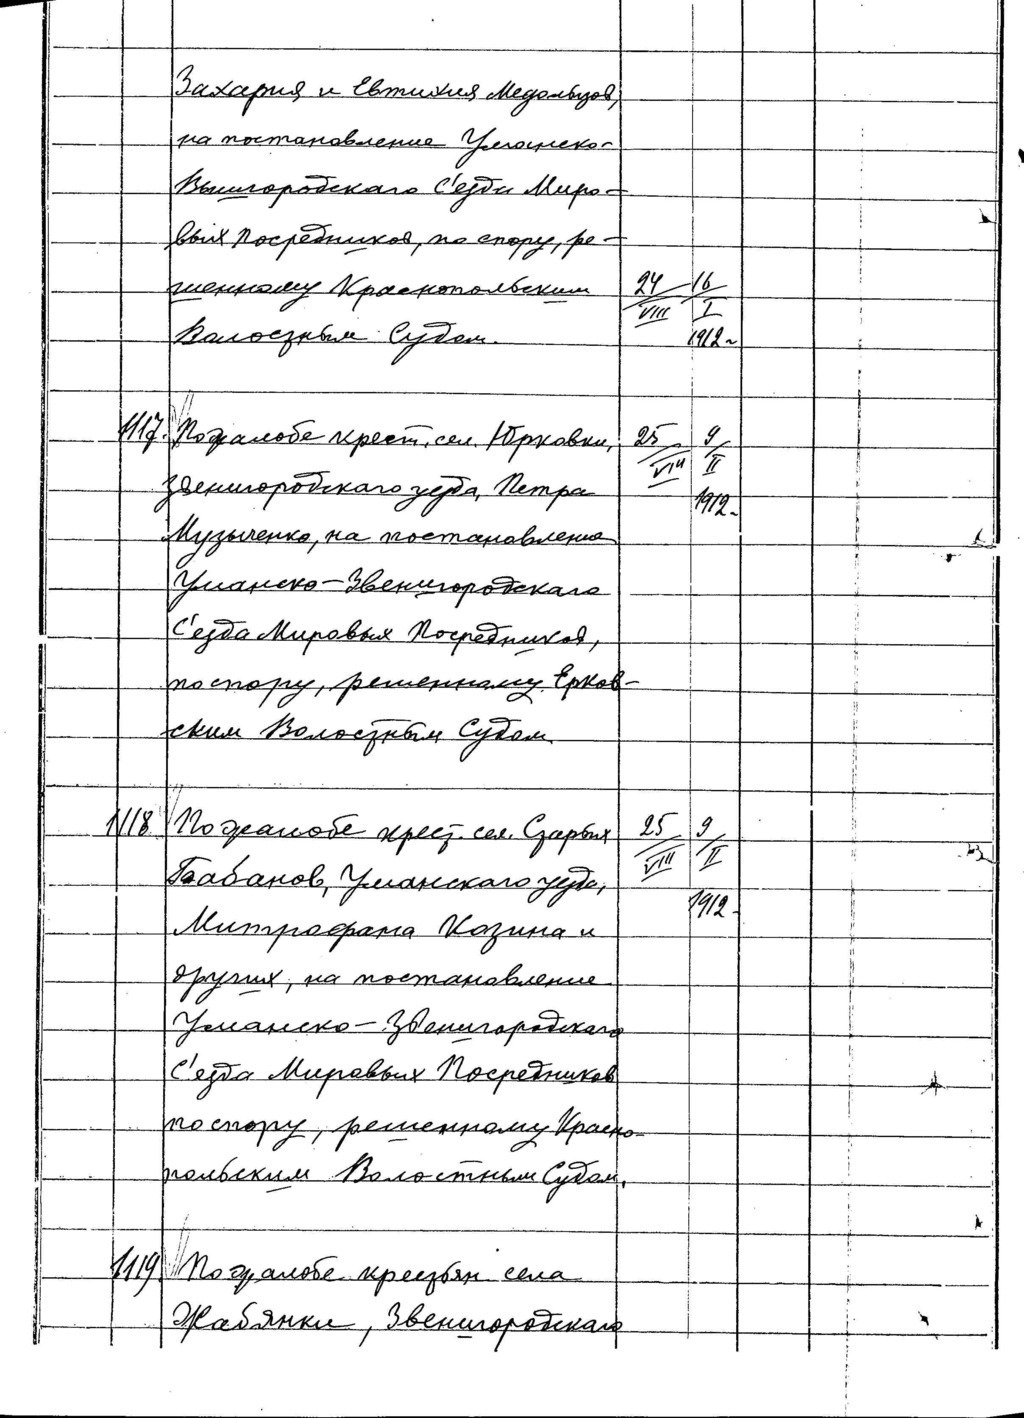 Захария и Евтихия Медольцов,
на постановление Уманско-
Вышгородскаго С'езда Миро-
вых Посредников, по спору, ре-
шенному Краснопольским 24/VIII 16/I
Волостным Судом. 1912.
1117. По жалобе крест. сел. Юрковки, 25/VIII 9/II
Звенигородскаго уезда, Петра 1912.
Музыченко, на постановление
Уманско-Звенигородскаго
С'езда Мировых Посредников,
по спору, решенному Ерков-
ским Волостным Судом.
1118 По жалобе крест. сел. Старых 25/VIII 9/II
Бабанов, Уманскаго уезда,
Митрофана Козина и 1912.
других, на постановление
Уманско-Звенигородскаго
С'езда Мировых Посредников
по спору, решенному Красно-
польским Волостным Судом.
1119 По жалобе крестьян села
Жабянки, Звенигородскаго